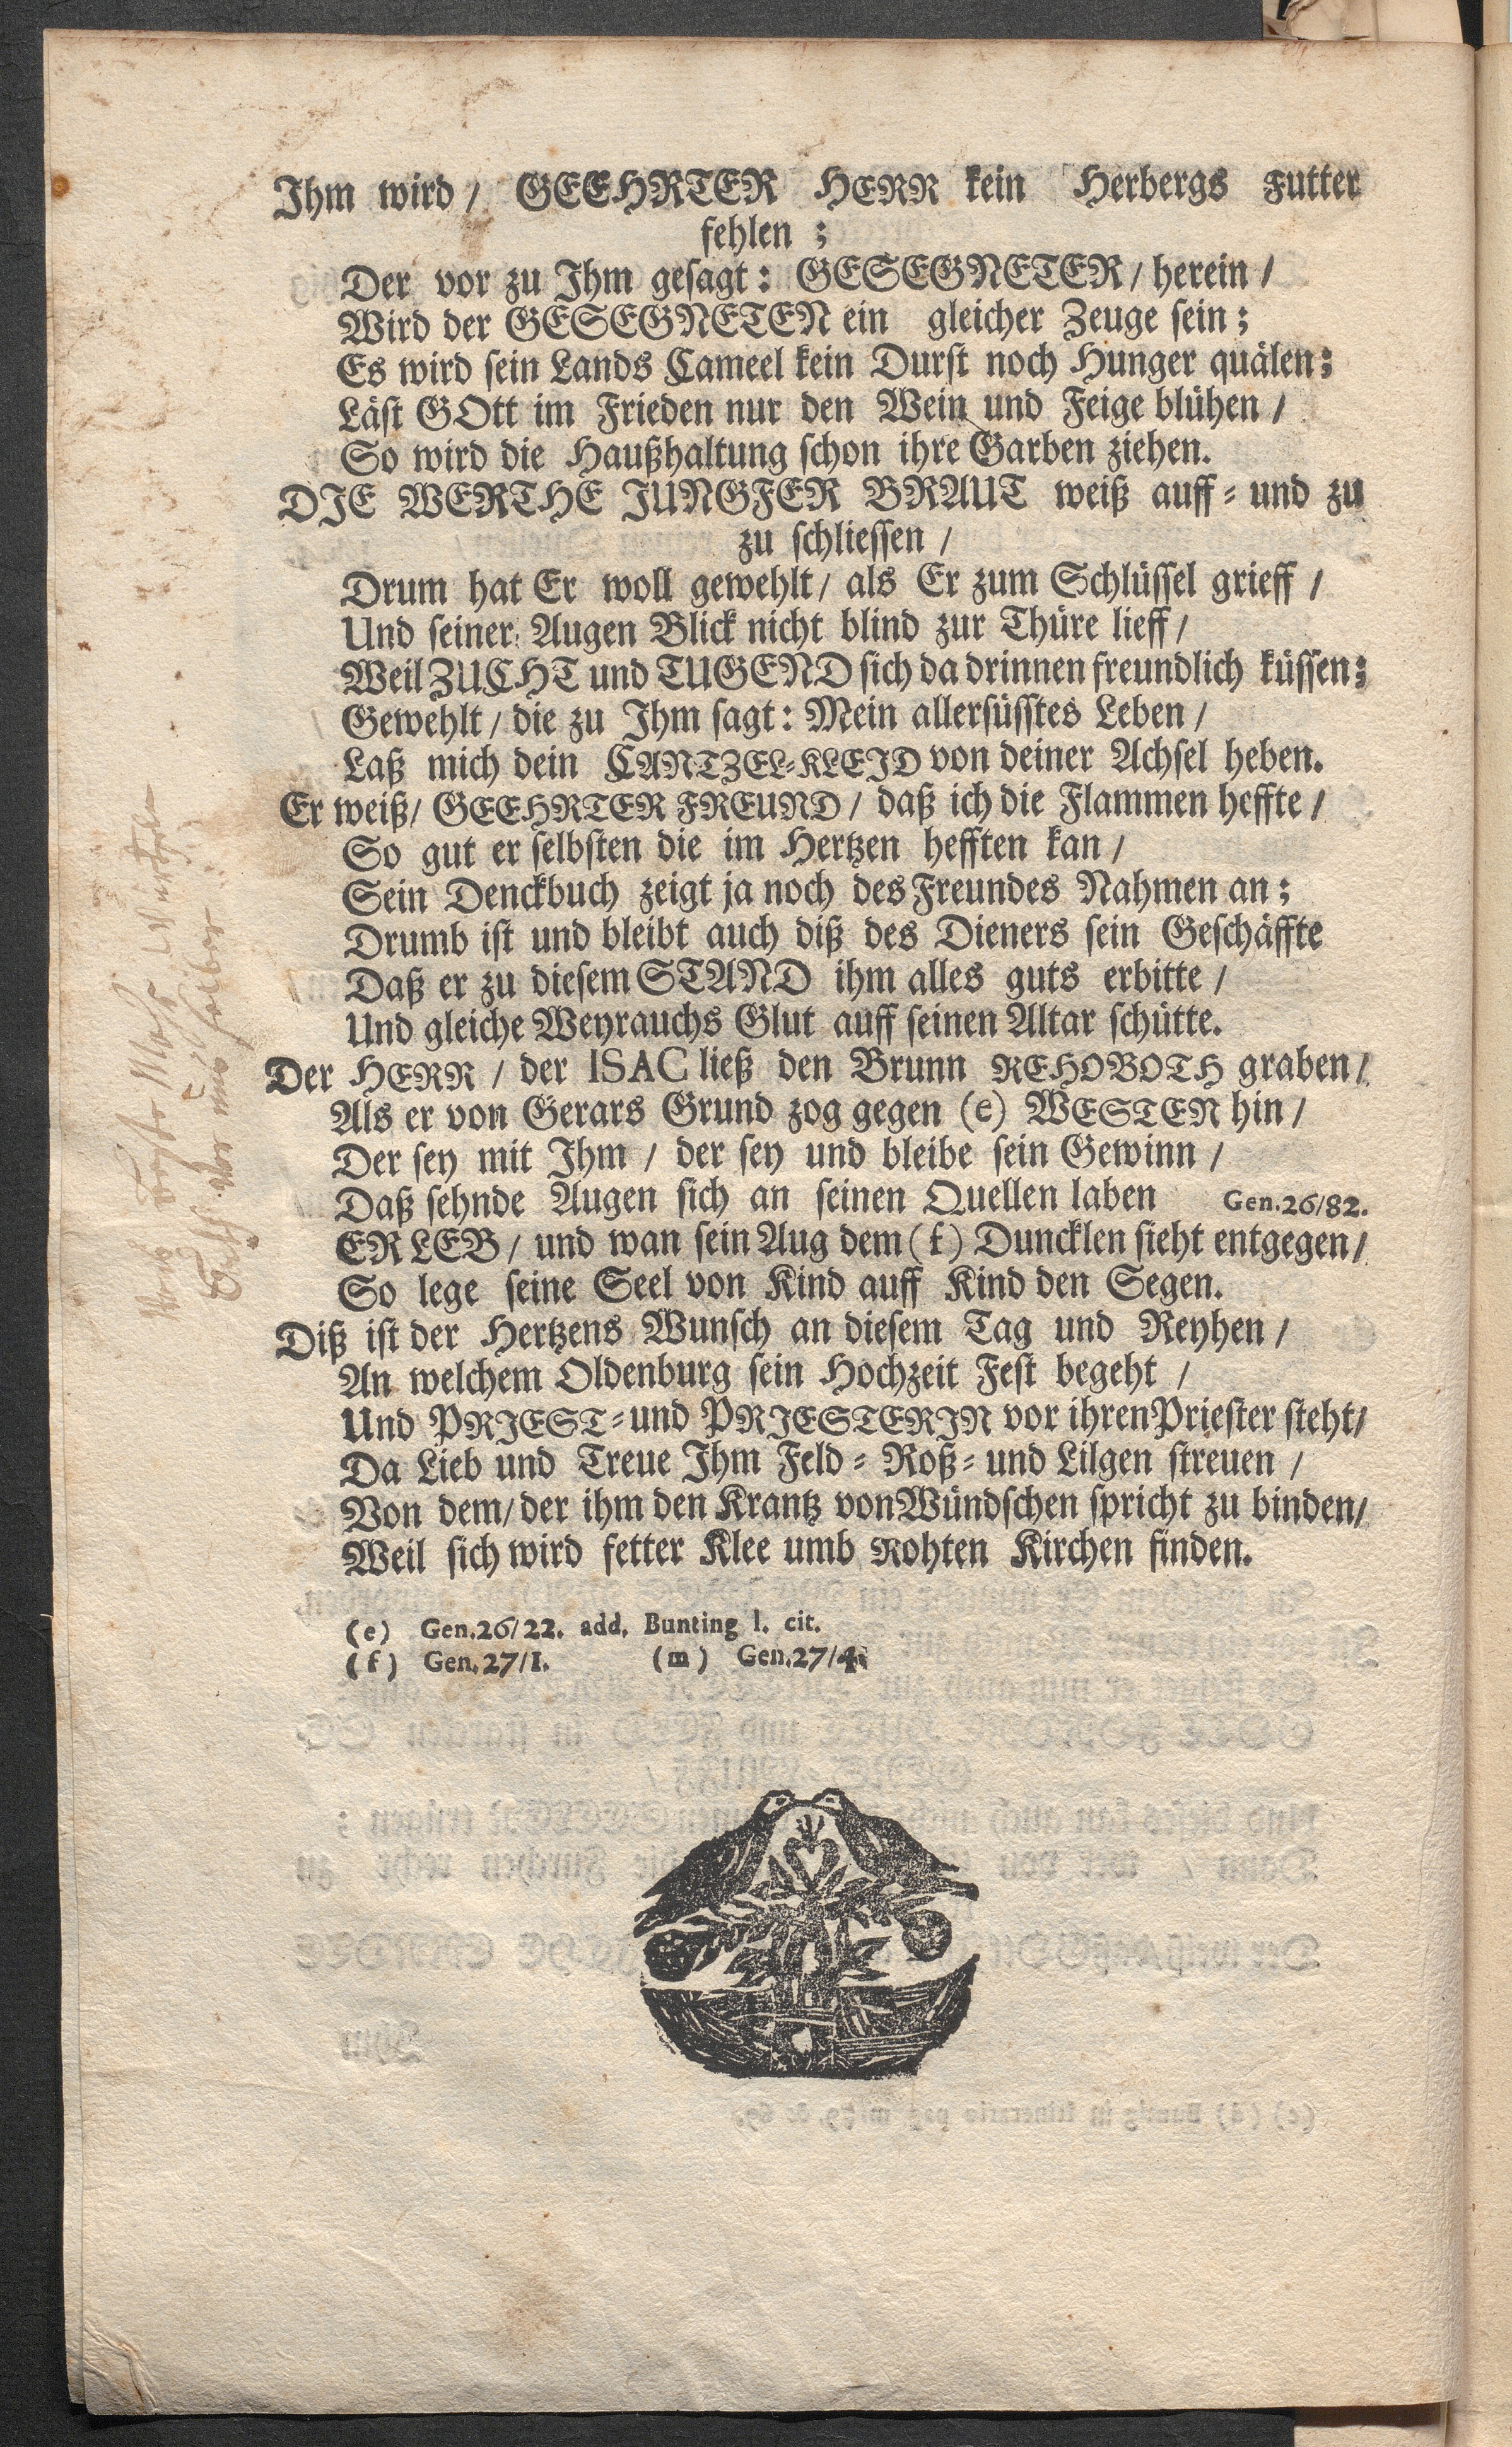 Ihm wird / GEEHRTER HERR kein Herbergs Futter
fehlen ;
Der vor zu Ihm gesagt : GESEGNETER / herein /
Wird der GESEGNETEN ein gleicher Zeuge sein ;
Es wird sein Lands Cameel kein Durst noch Hunger quälen ;
Läst GOtt im Frieden nur den Wein und Feige blühen /
So wird die Haußhaltung schon ihre Garben ziehen.
DJE WERTHE JUNGFER BRAUT weiß auff = und zu
zu schliessen /
Drum hat Er woll gewehlt / als Er zum Schlüssel grieff /
Und seiner Augen Blick nicht blind zur Thüre lieff /
Weil ZUCHT und TUGEND sich da drinnen freundlich küssen ;
Gewehlt / die zu Ihm sagt : Mein allersüsstes Leben /
Laß mich dein CANTZEL=KLEJD von deiner Achsel heben.
Er weiß / GEEHRTER FREUND / daß ich die Flammen heffte /
So gut er selbsten die im Hertzen hefften kan /
Sein Denckbuch zeigt ja noch des Freundes Nahmen an ;
Drumb ist und bleibt auch diß des Dieners sein Geschäffte
Daß er zu diesem STAND ihm alles guts erbitte /
Und gleiche Weyrauchs Glut auff seinen Altar schütte.
Der HERR / der ISAC ließ den Brunn REHOBOTH graben /
Als er von Gerars Grund zog gegen (e) WESTEN hin /
Der sey mit Ihm / der sey und bleibe sein Gewinn /
Daß sehnde Augen sich an seinen Quellen laben Gen.26/82.
ER LEB / und wan sein Aug dem (f) Duncklen sieht entgegen /
So lege seine Seel von Kind auff Kind den Segen.
Diß ist der Hertzens Wunsch an diesem Tag und Reyhen /
An welchem Oldenburg sein Hochzeit Fest begeht /
Und PRJEST=und PRJESTERJN vor ihren Priester steht /
Da Lieb und Treue Ihm Feld = Roß = und Lilgen streuen /
Von dem / der ihm den Krantz von Wündschen spricht zu binden /
Weil sich wird fetter Klee umb Rohten Kirchen finden.
(e) Gen.26/22. add. Bunting l. cit.
(f) Gen.27/1. (m) Gen.27/4